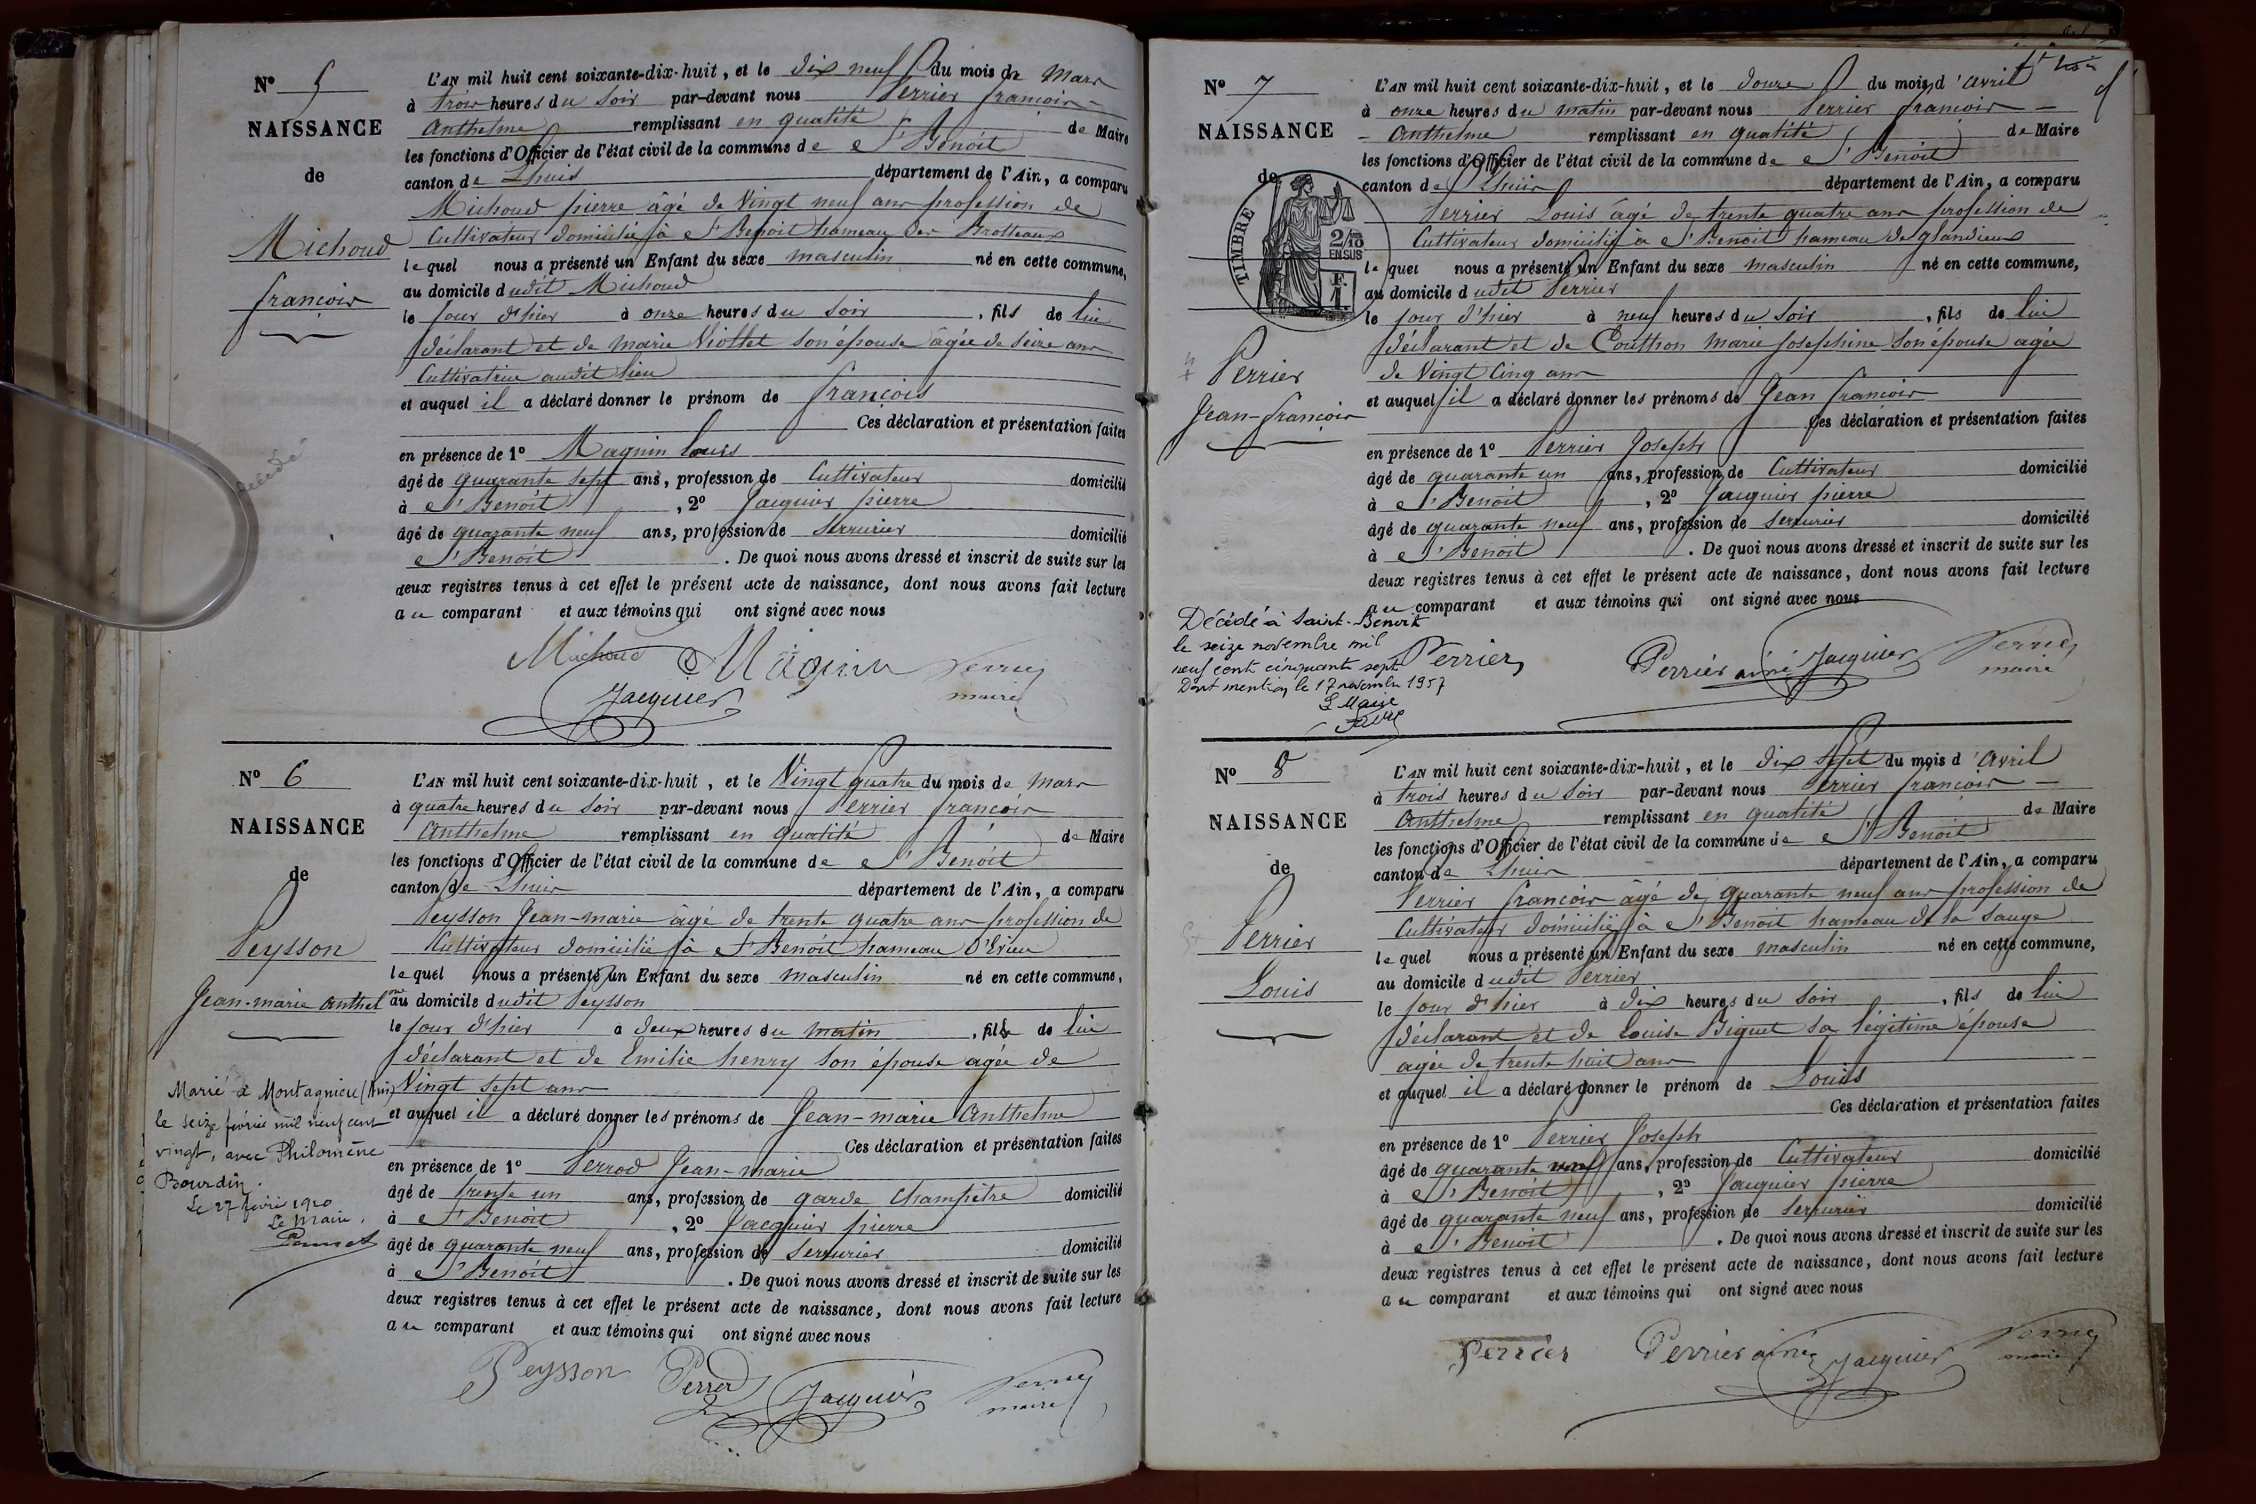 Nº 5
NAISSANCE
de
Michoud
françois
décédé
L'AN mil huit cent soixante-dix-huit, et le dix neuf du mois de Mars
à trois heures du Soir par-devant nous Perrier françois
Anthelme remplissant en qualité de Maire
les fonctions d'Officier de l'état civil de la commune de St Benoit
canton de Lhuis département de l'Ain, a comparu
Michoud pierre âgé de Vingt neuf ans profession de
Cultivateur domicilié à St Benoit hameau des Brotteaux
lequel nous a présenté un Enfant du sexe masculin né en cette commune,
au domicile dudit Michoud
le jour d'hier à onze heures du Soir, fils de lui
déclarant et de Marie Viollet son épouse âgée de seize ans
Cultivatrice audit lieu
et auquel il a déclaré donner le prénom de françois
Ces déclaration et présentation faites
en présence de 1º Magnin Louis
âgé de quarante sept ans, profession de Cultivateur domicilié
à St Benoit, 2º Jacquier pierre
âgé de quarante neuf ans, profession de Serrurier domicilié
St Benoit. De quoi nous avons dressé et inscrit de suite sur les
deux registres tenus à cet effet le présent acte de naissance, dont nous avons fait lecture
au comparant et aux témoins qui ont signé avec nous
Michoud Magnin Perrier
Jacquier maire
Nº 6
NAISSANCE
de
Peysson
Jean-marie Anthelme
Marié à Montagnieu (Ain)
le seize février mil neuf cent
vingt, avec Philomène
Bourdin.
Le 27 février 1920
Le Maire,
L'AN mil huit cent soixante-dix-huit, et le Vingt quatre du mois de Mars
à quatre heures du Soir par-devant nous Perrier françois
Anthelme remplissant en qualité de Maire
les fonctions d'Officier de l'état civil de la commune de St Benoit
canton de Lhuis département de l'Ain, a comparu
Peysson Jean-marie âgé de trente quatre ans profession de
Cultivateur domicilié à St Benoit hameau d'Evieu
lequel nous a présenté un Enfant du sexe masculin né en cette commune,
au domicile dudit Peysson
le jour d'hier à deux heures du matin, fils de lui
déclarant et de Emilie henry son épouse agée de
Vingt sept ans
et auquel il a déclaré donner les prénoms de Jean-marie Anthelme
Ces déclaration et présentation faites
en présence de 1º Perrod Jean-marie
âgé de trente un ans, profession de garde Champêtre domicilié
à St Benoit, 2º Jacquier pierre
âgé de quarante neuf ans, profession de Serrurier domicilié
à St Benoit. De quoi nous avons dressé et inscrit de suite sur les
deux registres tenus à cet effet le présent acte de naissance, dont nous avons fait lecture
au comparant et aux témoins qui ont signé avec nous
Peysson Perrod Jacquier Perrier
maire
Nº 7
NAISSANCE
de
TIMBRE
2/10
EN SUS
F.
1
Perrier
Jean-françois
Décédé à Saint-Benoit
le seize novembre mil
neuf cent cinquante sept
Dont mention le 17 novembre 1957
Le Maire
L'AN mil huit cent soixante-dix-huit, et le douze du mois d'avril
à onze heures du matin par-devant nous Perrier françois
Anthelme remplissant en qualité de Maire
les fonctions d'Officier de l'état civil de la commune de St Benoit
canton de Lhuis département de l'Ain, a comparu
Perrier Louis âgé de trente quatre ans profession de
Cultivateur domicilié à St Benoit hameau de glandieux
lequel nous a présenté un Enfant du sexe masculin né en cette commune,
au domicile dudit Perrier
le jour d'hier à neuf heures du Soir, fils de lui
déclarant et de Couthon Marie Josephine son épouse agée
de Vingt Cinq ans
et auquel il a déclaré donner les prénoms de Jean françois
Ces déclaration et présentation faites
en présence de 1º Perrier Joseph
âgé de quarante un ans, profession de Cultivateur domicilié
à St Benoit, 2º Jacquier pierre
âgé de quarante neuf ans, profession de Serrurier domicilié
à St Benoit. De quoi nous avons dressé et inscrit de suite sur les
deux registres tenus à cet effet le présent acte de naissance, dont nous avons fait lecture
au comparant et aux témoins qui ont signé avec nous
Perrier Perrier ainé Jacquier Perrier
maire
Nº 8
NAISSANCE
de
Perrier
Louis
L'AN mil huit cent soixante-dix-huit, et le dix sept du mois d'Avril
à trois heures du Soir par-devant nous Perrier françois
Anthelme remplissant en qualité de Maire
les fonctions d'Officier de l'état civil de la commune de St Benoit
canton de Lhuis département de l'Ain, a comparu
Perrier françois âgé de quarante neuf ans profession de
Cultivateur domicilié à St Benoit hameau de la Sauge
lequel nous a présenté un Enfant du sexe masculin né en cette commune,
au domicile dudit Perrier
le jour d'hier à dix heures du Soir, fils de lui
déclarant et de Louise Biguet sa légitime épouse
agée de trente huit ans
et auquel il a déclaré donner le prénom de Louis
Ces déclaration et présentation faites
en présence de 1º Perrier Joseph
âgé de quarante ans, profession de Cultivateur domicilié
à St Benoit, 2º Jacquier pierre
âgé de quarante neuf ans, profession de Serrurier domicilié
à St Benoit. De quoi nous avons dressé et inscrit de suite sur les
deux registres tenus à cet effet le présent acte de naissance, dont nous avons fait lecture
au comparant et aux témoins qui ont signé avec nous
Perrier Perrier ainé Jacquier Perrier
maire